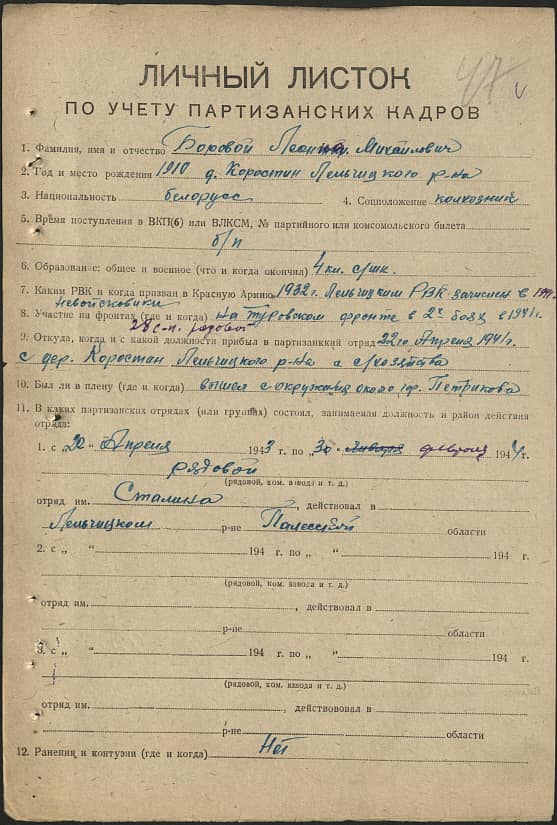 47 v
ЛИЧНЫЙ ЛИСТОК
ПО УЧЕТУ ПАРТИЗАНСКИХ КАДРОВ
1. Фамилия, имя и отчество Боровой Михайлович
2. Год и место рождения 1910 д. Коростин Лельчицкого р-на
3. Национальность белорусс 4. Соцположение колхозник
5. Время поступления в ВКП(б) или ВЛКСМ, № партийного или комсомольского билета
б/п
6. Образование: общее и военное (что и когда окончил) 4 кл. с/шк.
7. Каким РВК и когда призван в Красную Армию 1932 г. Лельчицким РВК зачислен в
невойсковики
8. Участие на фронтах (где и когда) на Туровском фронте в 2х боях в 1941 г.
28 с.п. рядовой
9. Откуда, когда и с какой должности прибыл в партизанкий отряд 22го Апреля 1941 г.
с дер. Коростан Лельчицкого р-на а с/хозяйства
10. Был ли в плену (где и когда) вышел с окружения около гор. Петрикова
11. В каких партизанских отрядах (или группах) состоял, занимаемая должность и район действия
отряда:
1. с „22“ Апреля 1943 г. по „30“ января февраля 1944 г.
рядовой
(рядовой, ком. взвода и т. д.)
отряд им. Сталина , действовал в
Лельчицком р-не Полесской области
2. с „ “ 194 г. по „ “ 194 г.
(рядовой, ком. взвода и т. д.)
отряд им. , действовал в
р-не области
3. с „ “ 194 г. по „ “ 194 г.
(рядовой, ком. взвода и т. д.)
отряд им. , действововал в
р-не области
12. Ранения и контузии (где и когда) Нет